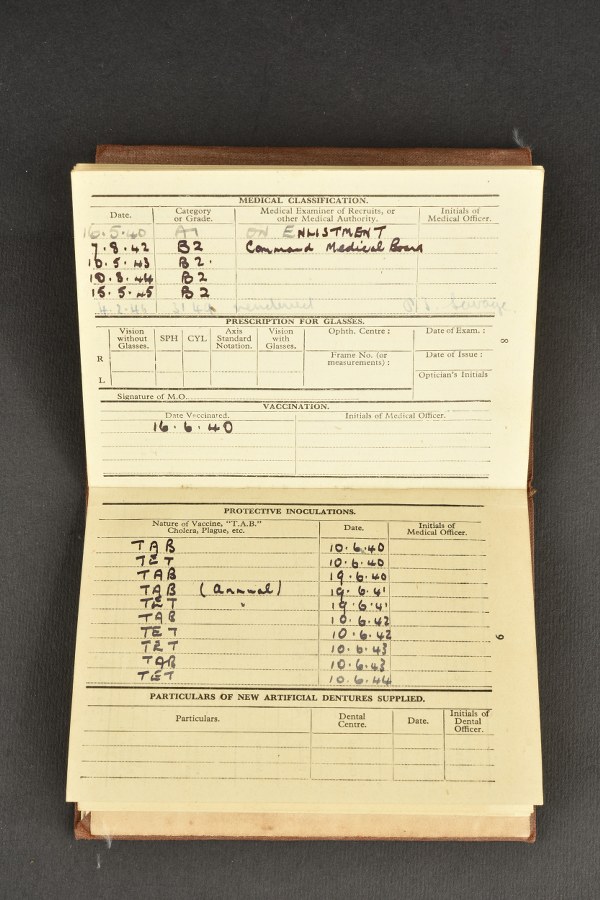 MEDICAL CLASSIFICATION.
Date. Category or Grade. Medical Examiner of Recruits, or other Medical Authority. Initials of Medical Officer.
16.5.40 A1 ON ENLISTMENT
7.8.42 B2 Command Medical Board
10.5.43 B2.
10.8.44 B2
15.5.45 B2
4.2.46
PRESCRIPTION FOR GLASSES.
Vision without Glasses. SPH CYL. Axis Standard Notation. Vision with Glasses. Ophth. Centre : Date of Exam. :
R Frame No. (or measurements) : Date of Issue :
L Optician's Initials
Signature of M.O.
8
VACCINATION.
Date Vaccinated. Initials of Medical Officer.
16.6.40
PROTECTIVE INOCULATIONS.
Nature of Vaccine, "T.A.B." Cholera, Plague, etc. Date. Initials of Medical Officer.
TAB 10.6.40
TET 10.6.40
TAB 19.6.40
TAB (Annual) 19.6.41
TET " 19.6.41
TAB 10.6.42
TET 10.6.42
TET 10.6.43
TAB 10.6.43
TET 10.6.44
9
PARTICULARS OF NEW ARTIFICIAL DENTURES SUPPLIED.
Particulars. Dental Centre. Date. Initials of Dental Officer.